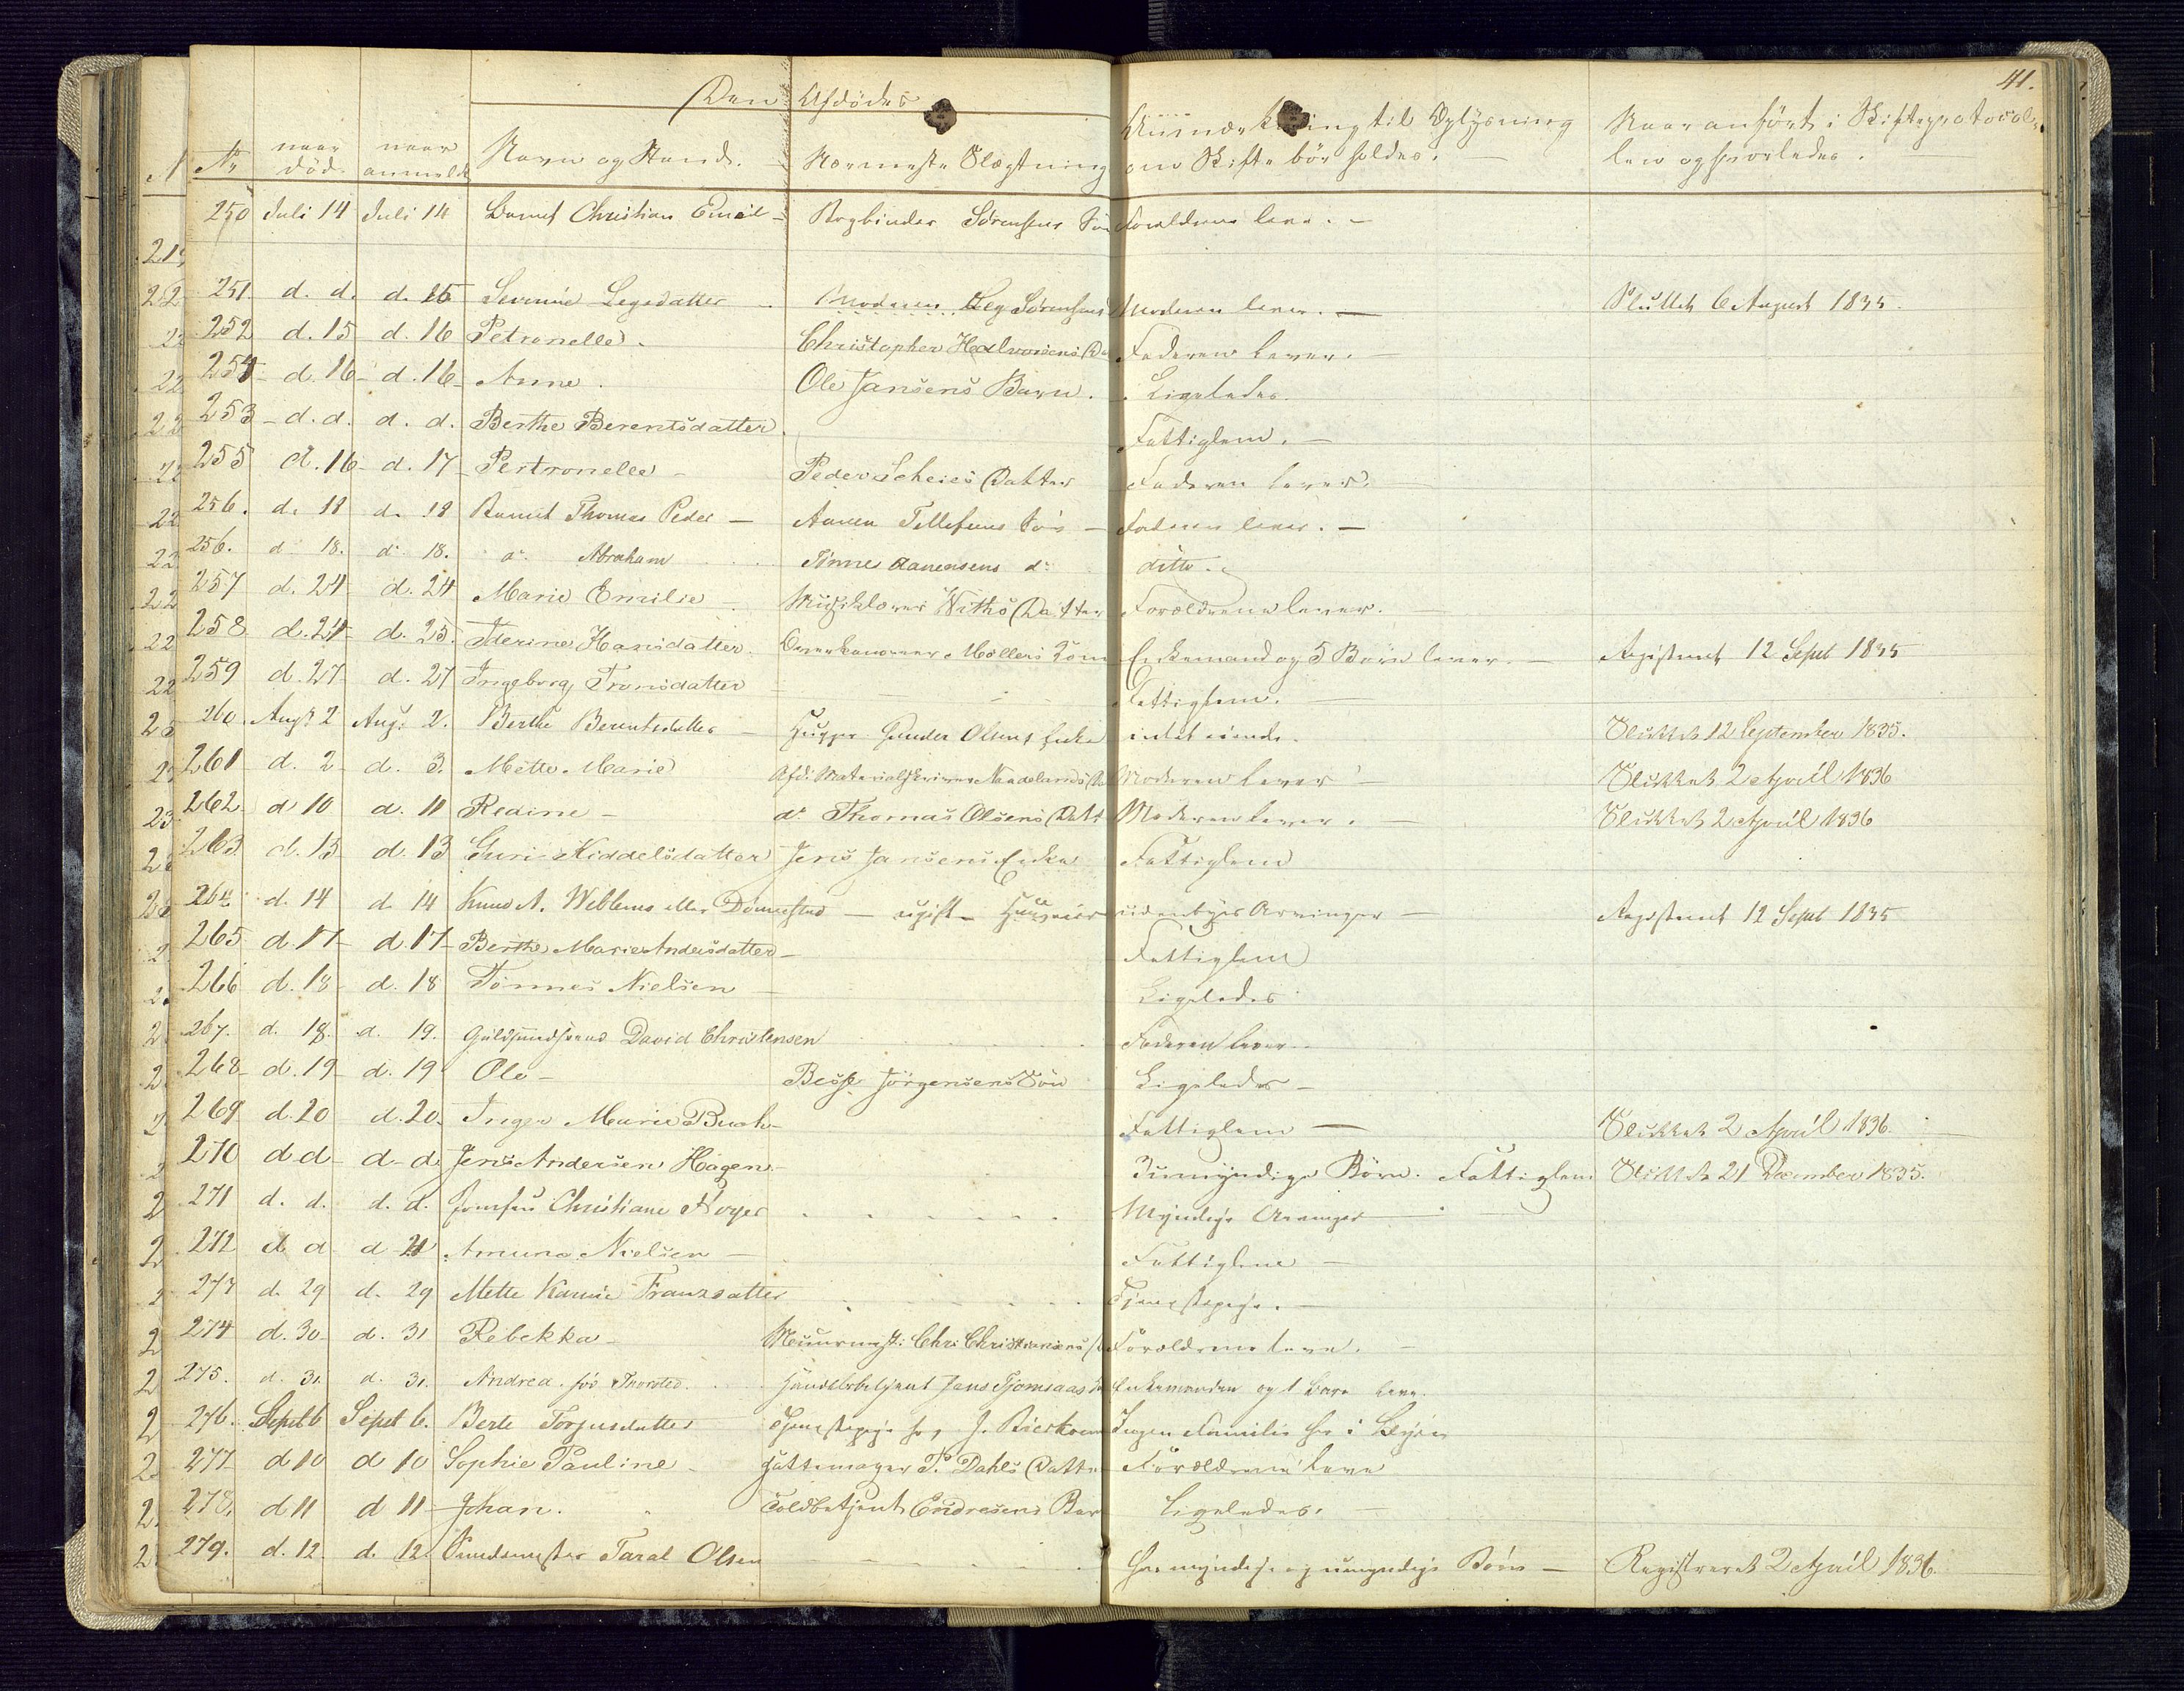 41.
Den Afdødes
Nr naar død naar anmeldt Navn og Stand. Nærmeste Slægtning Anmærkning til Oplysning om Skifte bør holdes. Naar anført i Skifteprotocollen og hvorledes.
250 Juli 14 Juli 14 Barnet Christian Emil - Bogbinder Sørensens Søn Forældrene leve. -
251 d. d. d. 15 Severine Legsdatter - Moderen Leg Sørensens Moderen lever. - Sluttet 6 August 1835.
252 d. 15 d. 16 Petronelle. Christopher Halvorsens Faderen lever. -
254 d. 16 d. 16 Anne. Ole Jansens Barn. Ligeledes.
253 d. d. d. d. Berthe Berentsdatter. Fattiglem. -
255 d. 16 d. 17 Pertronelle - Peder Scheies Datter Faderen lever. -
256. d. 18 d. 18 Barnet Thomas Peder - Aanen Tellefsens Søn - Faderen lever. -
256. d. 18. d. 18. do. Abraham Tønnes Aanensens do. ditto.
257 d. 24 d. 24 Marie Emilie - Witths Datter Forældrene lever. -
258 d. 24 d. 25. Iterine Hansdatter. Møllers Kone Enkemand og 5 Børn lever. - Registreret 12 Sept 1835
259 d. 27 d. 27 Ingeborg Tronsdatter - Fattiglem. -
260. Augt 2 Augt 2. Berthe Berentsdatter - Gunder Olsens Enke intet eiende. Sluttet 12 September 1835.
261 d. 2 d. 3. Mette Marie Afd. Materialskriver Naadelands Moderen lever - Sluttet 2 April 1836
262. d 10 d. 11 Redine - do. Thomas Olsens Datt Moderen lever. - Sluttet 2 April 1836
263 d. 13 d. 13 Guri Kiddelsdatter Jens Jansens Enke Fattiglem
264 d. 14 d 14 Knud A. Weblens eller Dømmestad - ugift - udenbyes Arvinger - Registreret 12 Sept 1835
265 d. 17 d. 17 Berthe Marie Andersdatter - Fattiglem
266 d. 18 d. 18 Tönnes Nielsen - Ligeledes
267. d. 18. d. 19. Guldsmedsvend David Christensen Faderen lever. -
268 d. 19 d. 19 Ole - Besse Jörgensens Sön Ligeledes -
269 d. 20 d. 20. Inger Marie Buch - Fattiglem - Sluttet 2 April 1836.
270 d d d d. Jens Andersen Hagen. - 3 umyndige Börn. Fattiglem Sluttet 21 December 1835.
271 d. d. d. d. Jomfru Christiane Høyer Myndige Arvinger -
272 d d d 21 Amund Nielsen - Fattiglem -
273 d. 29 d. 29 Mette Karine Franzdatter Tjenestepige. -
274 d. 30 d. 31 Rebekka - Muurmest. Chr. Christiansens Forældrene leve. -
275. d. 31. d. 31. Andrea. fød Thorsted. Jens Tjomsaas Enkemanden og 1 Barn leve.
276. Sept 6 Sept 6. Berte Torjusdatter Tjenestepige hos J. Ingen Familie her i Byen
277 d 10 d 10 Sophie Pauline - Hattemager P. Dahls Datter Forældrene leve
278. d 11 d 11 Johan. Toldbetjent Endresens Barn Ligeledes. -
279. d. 12. d. 12. Smedemester Taral Olsen Har myndige og umyndige Børn - Registreret 2 April 1836.